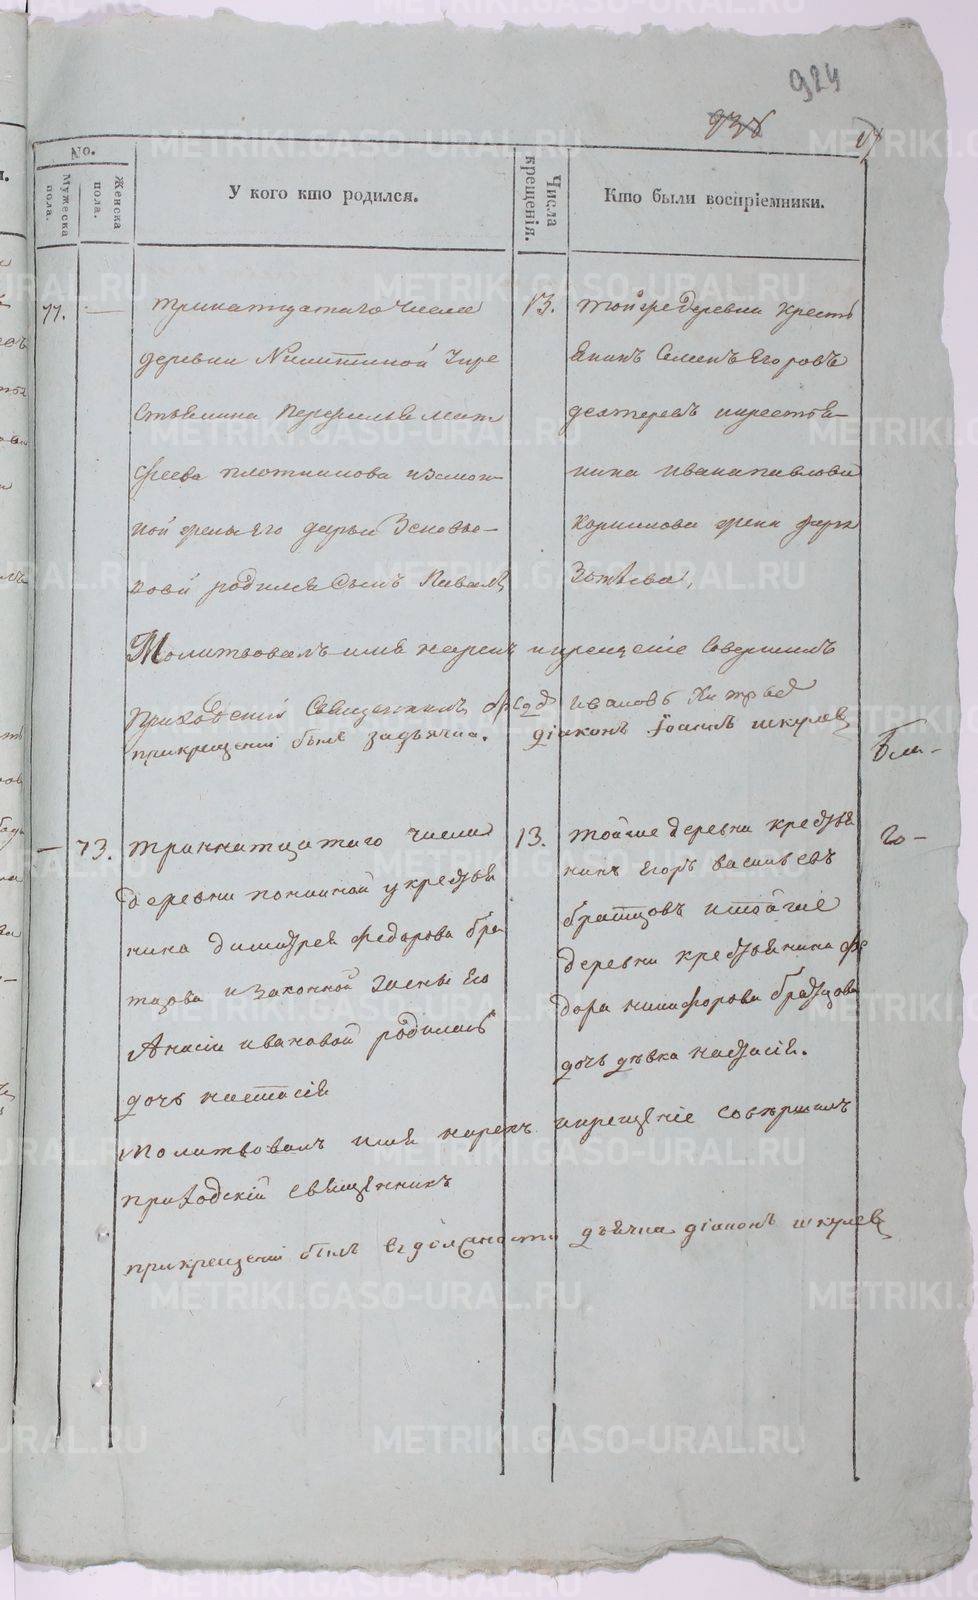 924
936
No.
Мужеска пола.
Женска пола.
У кого кто родился.
Числа крещенія.
Кто были воспріемники.
77. —
тринатцатаго числа
деревни Никитиной укре
стьянина Перфилья Мат
феева плотникова изакон
ной жены Его дарьи Зеновье
вой родился Сынъ Павелъ,
13.
тойже деревни крестъ
янинъ Семенъ Егоровъ
дехтеревъ икрестья
нина ивана павлова
Корнилова жена дарья
Молитвовалъ имя нарекъ икрещеніе Совершилъ
Приходскій Священникъ Ивановъ
прикрещеніи былъ задьячка. діаконъ Іоаннъ шкулев
— 73.
тринатцатаго числа
деревни укрестья
нина димитрея Федорова бра
тцова изаконной жены Его
Анасіи ивановой родилась
дочь настасія
13.
тойже деревни крестья
нинъ Егоръ васильевъ
братцовъ итойже
деревни крестьянина Фе
дора никифорова братцова
дочь дѣвка настасія.
молитвовалъ имя нарекъ икрещеніе совершилъ
приходскій священникъ
прикрещеніи былъ вдолжности дьячка діаконъ шкулев
бла-
го-
METRIKI.GASO-URAL.RU